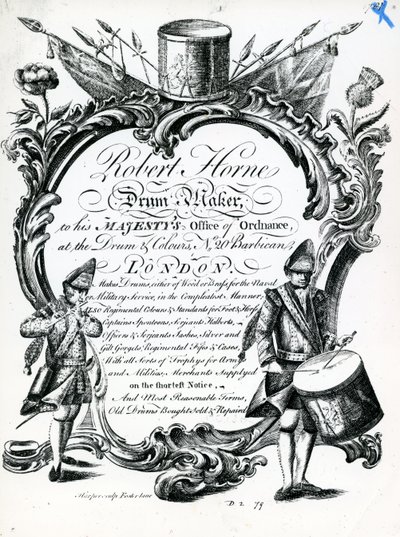 Robert Horne
Drum Maker,
to his MAJESTY'S Office of Ordnance,
at the Drum & Colours, No. 20 Barbican,
LONDON.
Makes Drums, either of Wood or Brass for the Naval
or Military Service, in the Compleatest Manner,
Also Regimental Colours & Standards for Foot & Horse
Captains Spontoons, Serjants Halberts,
Officers & Serjants Sashes, Silver and
Gilt Gorgets, Regimental Fifes & Cases
With all Sorts of Trophys for Army
and Militias, Merchants Supplyed
on the shortest Notice,
And Most Reasonable Terms,
Old Drums Bought Sold & Repaird
Harper sculp Foster lane
D. 2. 79